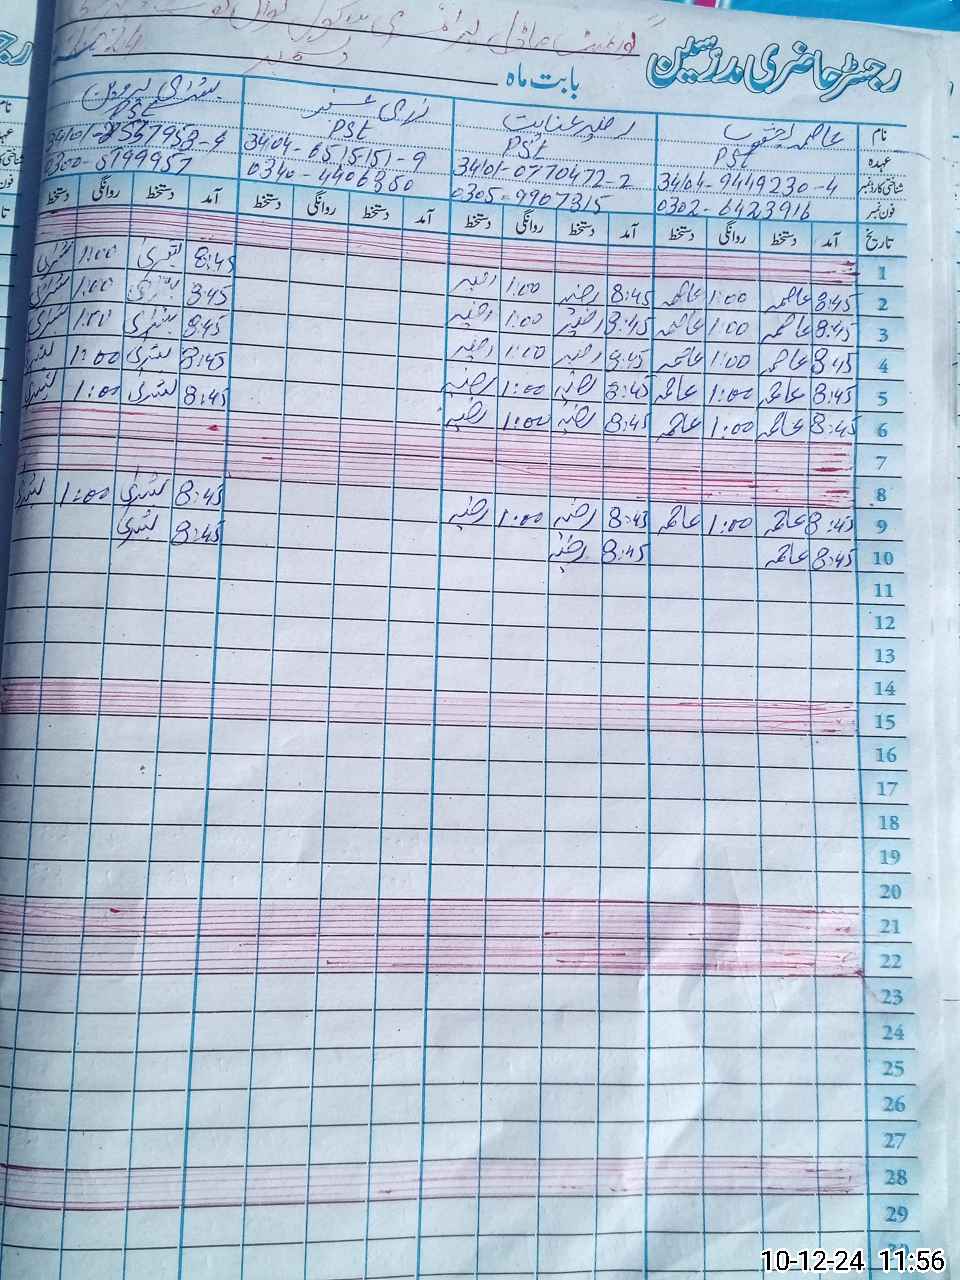 رجسٹر حاضری مدرسین
بابت ماہ دسمبر
نام عاصمہ رضیہ عنایت
عہدہ PST PST PST PST
شناختی کارڈ نمبر 3404-9449230-4 3401-0770472-2 3404-6515151-9
فون نمبر 0302-6423916 0305-9907315 0340-4406350 0300-5799957
تاریخ آمد دستخط روانگی دستخط آمد دستخط روانگی دستخط آمد دستخط روانگی دستخط آمد دستخط روانگی دستخط
1
2 8:45 عاصمہ 1:00 عاصمہ 8:45 رضیہ 1:00 رضیہ 8:45 بشری 1:00 بشری
3 8:45 عاصمہ 1:00 عاصمہ 8:45 رضیہ 1:00 رضیہ 8:45 بشری 1:00 بشری
4 8:45 عاصمہ 1:00 عاصمہ 8:45 رضیہ 1:00 رضیہ 8:45 بشری 1:00 بشری
5 8:45 عاصمہ 1:00 عاصمہ 8:45 رضیہ 1:00 رضیہ 8:45 بشری 1:00 بشری
6 8:45 عاصمہ 1:00 عاصمہ 8:45 رضیہ 1:00 رضیہ 8:45 بشری 1:00 بشری
7
8
9 8:45 عاصمہ 1:00 عاصمہ 8:45 رضیہ 1:00 رضیہ 8:45 بشری 1:00 بشری
10 8:45 عاصمہ 8:45 رضیہ 8:45 بشری
11
12
13
14
15
16
17
18
19
20
21
22
23
24
25
26
27
28
29
30
10-12-24 11:56